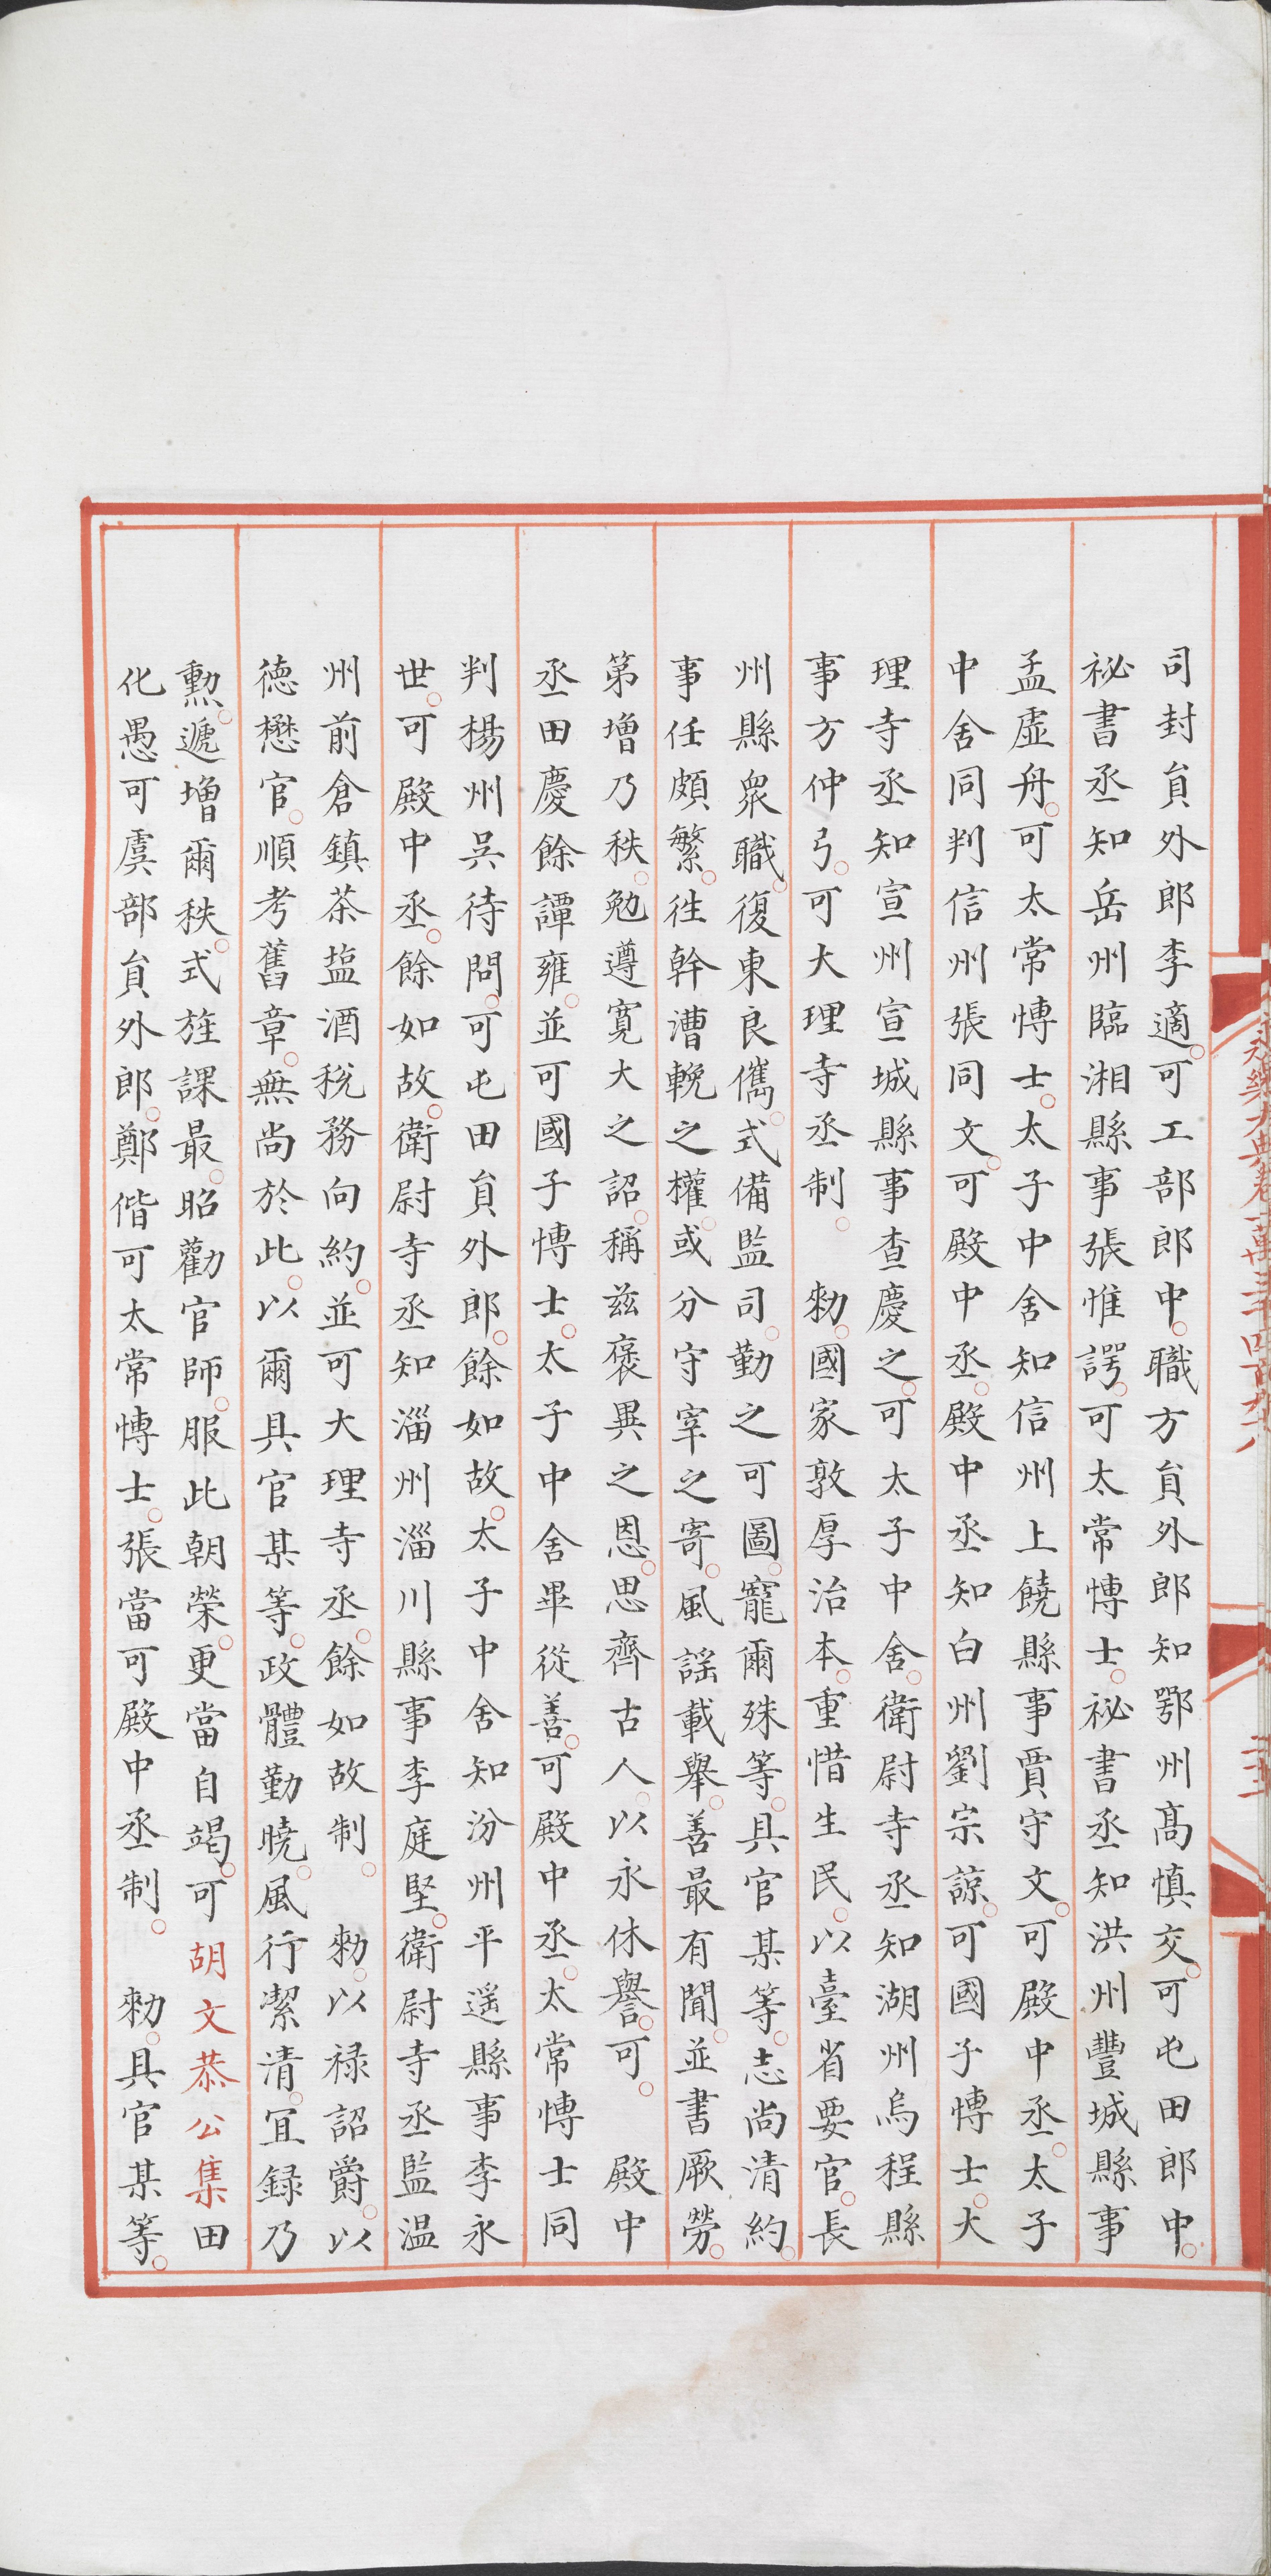 司封貟外郎李適可工部郎中職方貟外郎知鄂州髙慎交可屯田郎中
祕書丞知岳州臨湘縣事張惟諤可太常愽士祕書丞知洪州豐城縣事
孟虛舟可太常愽士太子中舍知信州上饒縣事賈守文可殿中丞太子
中舍同判信州張同文可殿中丞殿中丞知白州劉宗諒可國子愽士大
理寺丞知宣州宣城縣事查慶之可太子中舍衛尉寺丞知湖州烏程縣
事方仲弓可大理寺丞制 勑國家敦厚治本重惜生民以臺省要官長
州縣衆職復東良儁式備監司勤之可圖寵爾殊等具官某等志尚清約
事任頗繁徃幹漕輓之權或分守宰之寄風謡載舉善最有聞並書厥勞
第增乃秩勉遵寛大之詔稱兹襃異之恩思齊古人以永休譽可 殿中
丞田慶餘譚雍並可國子愽士太子中舍畢從善可殿中丞太常愽士同
判楊州吳待問可屯田貟外郎餘如故太子中舍知汾州平遥縣事李永
世可殿中丞餘如故衛尉寺丞知淄州淄川縣事李庭堅衛尉寺丞監温
州前倉鎮茶塩酒稅務向約並可大理寺丞餘如故制 勑以禄詔爵以
德懋官順考舊章無尚於此以爾具官某等政體勤曉風行潔清冝録乃
勲遞增爾秩式旌課最昭勸官師服此朝榮更當自竭可胡文恭公集田
化愚可虞部貟外郎鄭偕可太常愽士張當可殿中丞制 勑具官某等